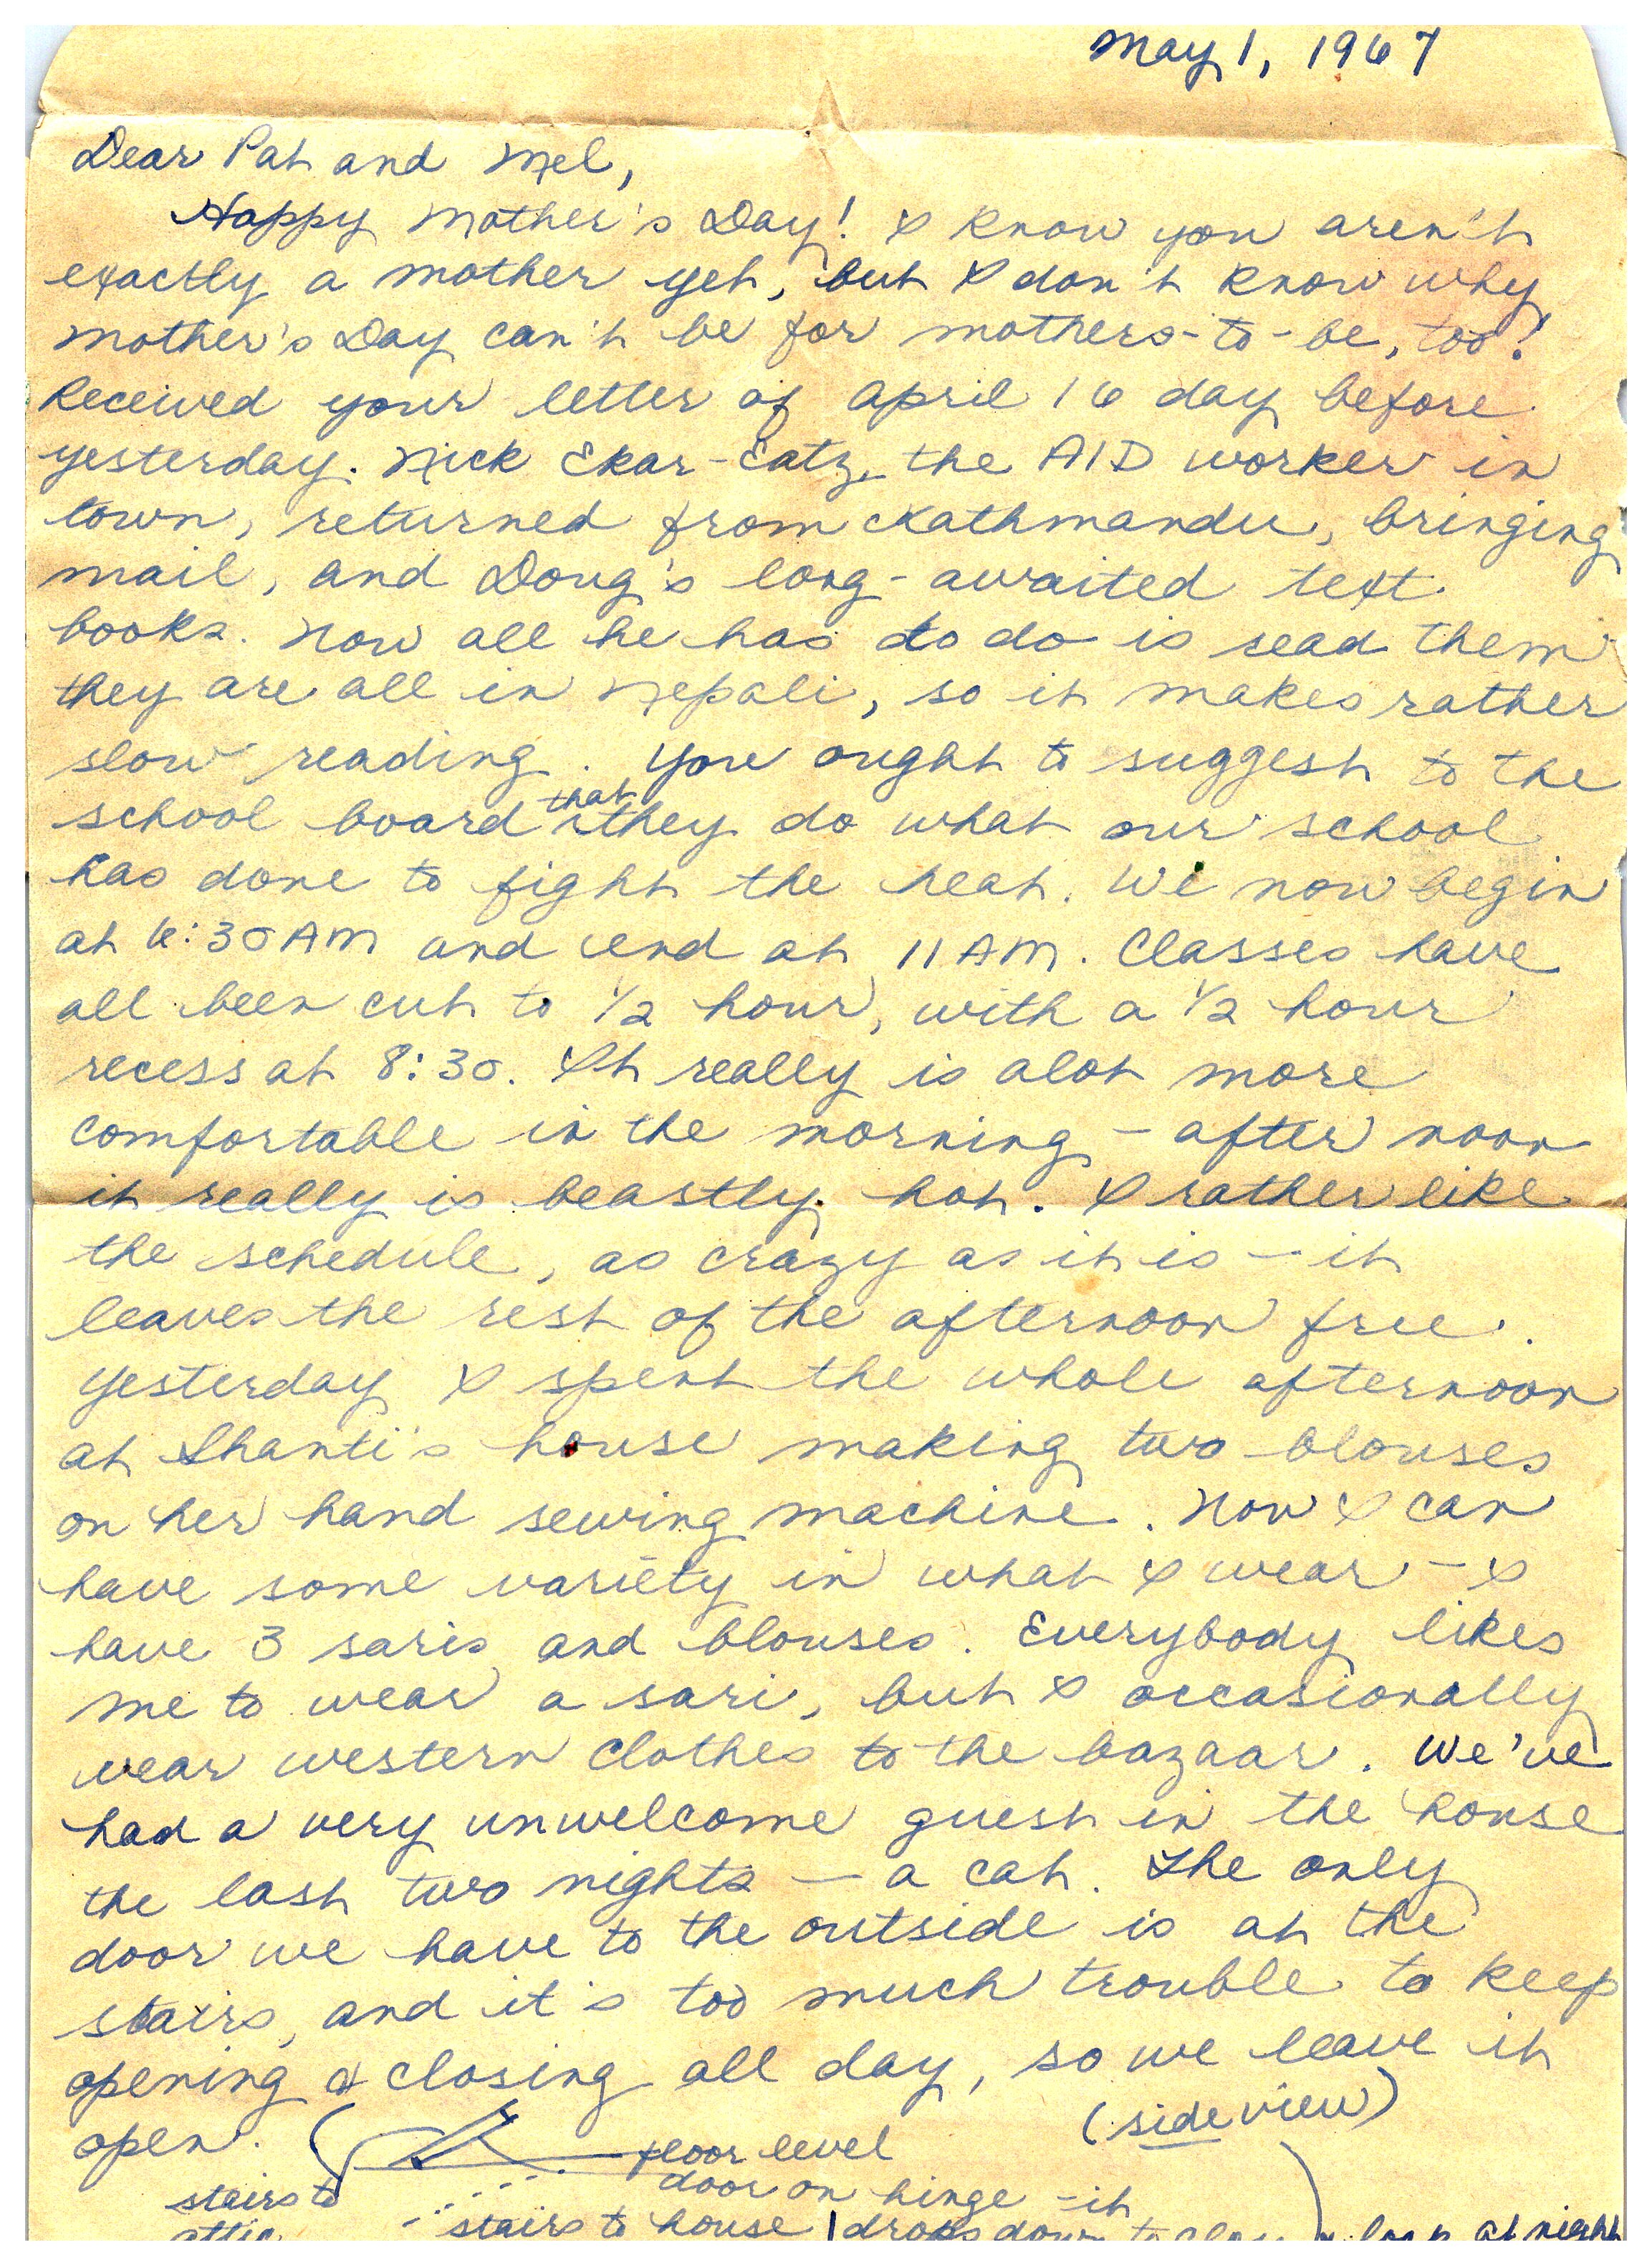 May 1, 1967
Dear Pat and Mel,
Happy Mother's Day! I know you aren't
exactly a mother yet, but I don't know why
Mother's Day can't be for mothers-to-be, too!
Received your letter of April 16 day before
yesterday. Nick Ekar-Eatz, the AID worker in
town, returned from Kathmandu, bringing
mail, and Doug's long-awaited text
books. Now all he has to do is read them
they are all in Nepali, so it makes rather
slow reading. You ought to suggest to the
school board that they do what our school
has done to fight the heat. We now begin
at 6:30 AM and end at 11 AM. Classes have
all been cut to 1/2 hour, with a 1/2 hour
recess at 8:30. It really is alot more
comfortable in the morning - after noon
it really is beastly hot. I rather like
the schedule, as crazy as it is - it
leaves the rest of the afternoon free.
Yesterday I spent the whole afternoon
at Shanti's house making two blouses
on her hand sewing machine. Now I can
have some variety in what I wear - I
have 3 saris and blouses. Everybody likes
me to wear a sari, but I occasionally
wear western clothes to the bazaar. We've
had a very unwelcome guest in the house
the last two nights - a cat. The only
door we have to the outside is at the
stairs, and it's too much trouble to keep
opening & closing all day, so we leave it
open. (
(side view)
floor level
door on hinge - it
stairs to
attic
stairs to house
drops down to close
at night